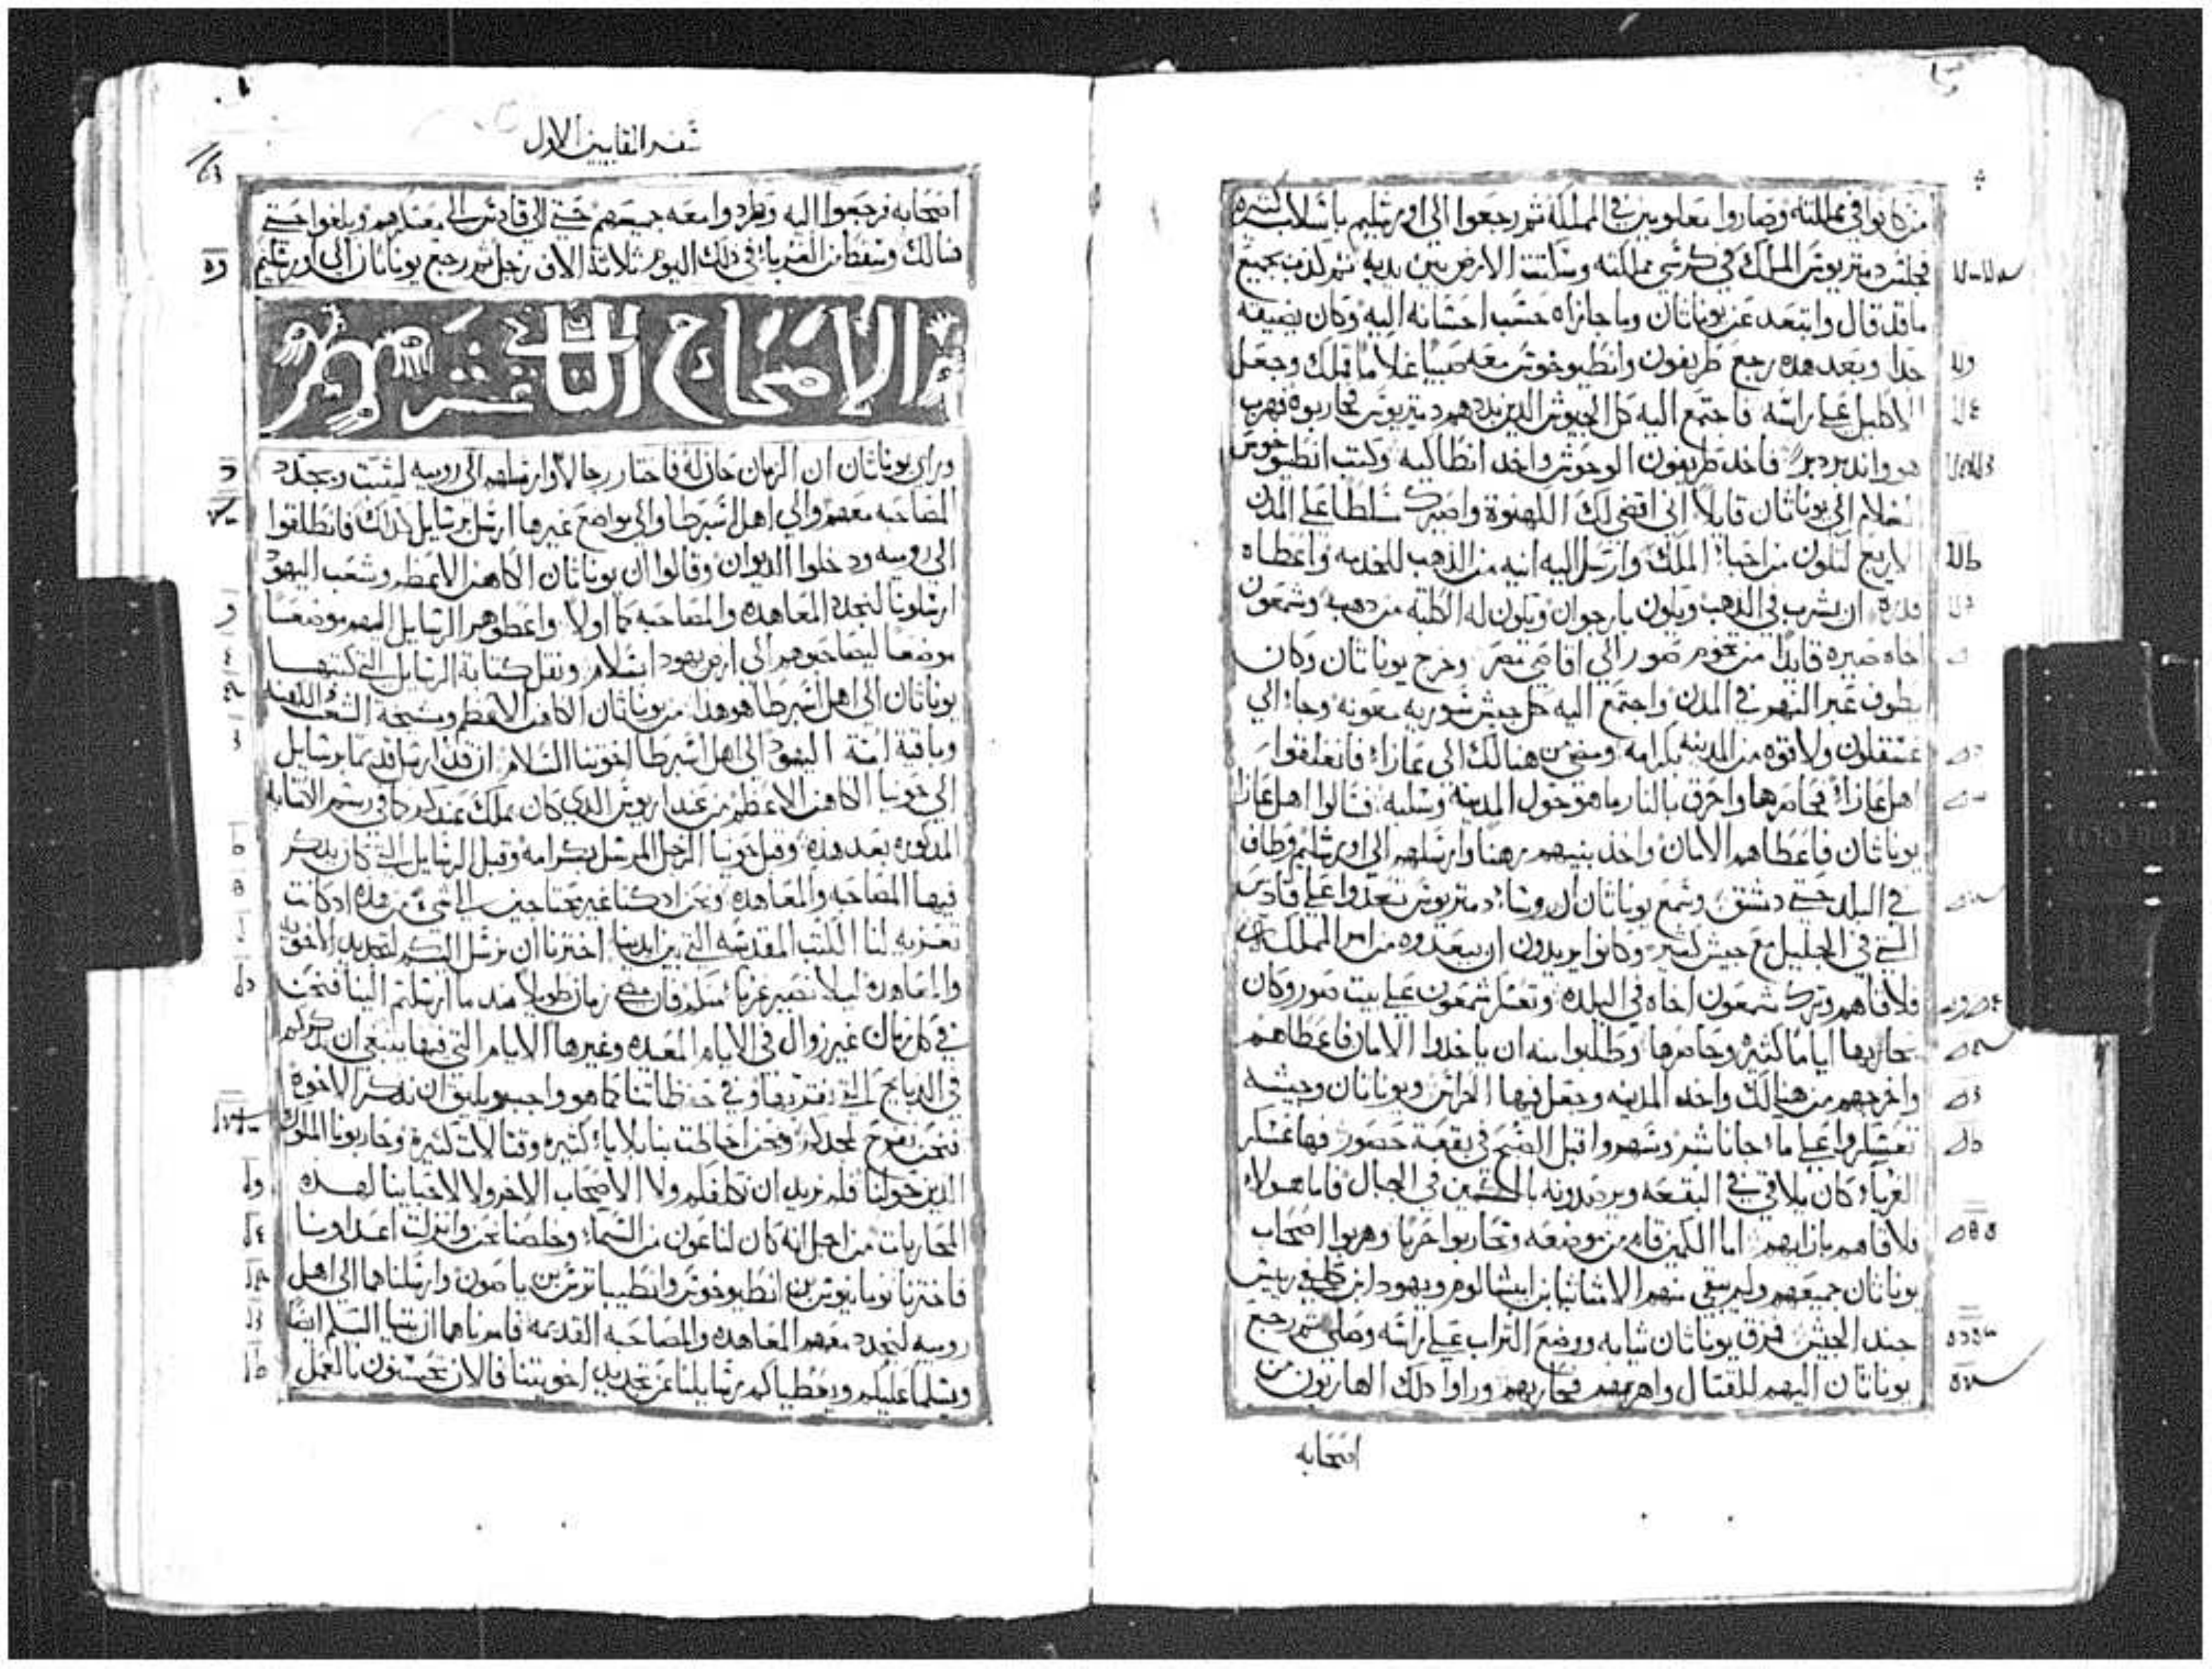 من كانوا في مملكته وصاروا مغلوبين في المملكة ثم رجعوا الى اورشليم باسلاب كثيره
فجلس دمتريوس الملك في كرسي مملكته وسكتت الارض بين يديه ثم كذب بجميع
ما قد قال وابتعد عن يوناثان وما جازاه حسب احسانه اليه وكان يضيقه
جدا وبعد هذه رجع طريفون وانطيوخوس معه صبيا غلاما فملك وجعل
الاكليل علي راسه فاجتمع اليه كل الجيوش الذين بددهم دمتريوس فحاربوه فهرب
هو واندبر دبرا فاخذ طريفون الوحوش واخذ انطاكيه وكتب انطيوخوس
الغلام الى يوناثان قايلا اني اقضي لك الكهنوة واصيرك سلطا علي المدن
الاربع لتكون من احبا الملك وارسل اليه انيه من الذهب للخدمه واعطاه
قدره ان يشرب في الدهب ويكون بارجوان وتكون له الكلبه من دهب وشمعون
اخاه صيره قايدا من تخوم صور الى اقاصي مصر وخرج يوناثان وكان
يطوف عبر النهر في المدن واجتمع اليه كل جيش سوريه معونه وجا الى
عسقلون ولاقوه من المدينه بكرامه ومضي من هنالك الى غازا فانغلقوا
اهل غازا فحاصرها واحرق بالنار ما هو حول المدينه وسلبه فسالوا اهل غازا
يوناثان فاعطاهم الامان واخذ بنيهم رهنا وارسلهم الى اورشليم وطاف
في البلد حتي دمشق وسمع يوناثان ان روسا دمتريوس تعدوا علي قادس
التي في الجليل مع جيش كثير وكانوا يريدون ان يبعدوه من امر المملكه
فلاقاهم وترك شمعون اخاه في البلده وتعسكر شمعون علي بيت صور وكان
يحاربها اياما كثيره وحاصرها وطلبوا منه ان ياخذوا الامان فاعطاهم
واخرجهم من هنالك واخذ المدينه وجعل فيها الحراس ويوناثان وجيشه
تعسكروا علي ما جاناشر وسهروا قبل الصبح في بقعة حصور فها عسكر
الغربا كان يلاقي في البقعه ويرصدونه بالكمين في الجبال فاما هولاء
فلاقاهم بازايهم اما الكمين قام من موضعه وتحاربوا حربا وهربوا اصحاب
يوناثان جميعهم ولم يبقي منهم الا متاثيا بن ابيشالوم ويهودا بن كلفي رييس
جند الجيش فمزق يوناثان ثيابه ووضع التراب علي راسه وصلي ثم رجع
يوناثان اليهم للقتال واهزمهم فحاربهم وراوا ذلك الهاربون من
اصحابه
سفر المقابيين الاول
اصحابه فرجعوا اليه وطردوا معه جميعهم حتي الى قادس الى معسكرهم وبلغوا حتي
هنالك وسقط من الغربا في ذلك اليوم ثلاثة الاف رجل ثم رجع يوناثان الى اورشليم
الاصحاح الثاني عشر
وراي يوناثان ان الزمان حان له فاختار رجالا وارسلهم الى روميه لتثبت وتجدد
المصاحبه معهم والي اهل اسبرطا والي مواضع غيرها ارسل برسايل كذلك فانطلقوا
الى روميه ودخلوا الديوان وقالوا ان يوناثان الكاهن الاعظم وشعب اليهود
ارسلونا لنجدد المعاهده والمصاحبه كما اولا واعطوهم الرسايل اليهم موضعا
موضعا ليصاحبوهم الى ارض يهودا بسلام ونقل كتابة الرسايل التي كتبها
يوناثان الى اهل اسبرطا هو هذا من يوناثان الكاهن الاعظم ومشيخة الشعب والكهنه
وباقية امة اليهود الى اهل اسبرطا اخوتنا السلام ان قد ارسل قديما برسايل
الى حونيا الكاهن الاعظم من عند اريوس الذي كان يملك عندكم كما في رسم الكتابه
المذكوره بعد هذه وقبل حونيا الرجل المرسل بكرامه وقبل الرسايل التي كان يذكر
فيها المصاحبه والمعاهده ونحن اذ كنا غير محتاجين الى شيء من هذه اذ كانت
تعزيه لنا الكتب المقدسه التي بين ايدينا اخترنا ان نرسل اليكم لتجديد الاخوه
والمعاهده ليلا نصير غربا منكم فان مضي زمان طويل منذ ما ارسلتم الينا فنحن
في كل زمان غير زوال في الايام المعيده وغيرها الايام التي فيها ينبغي ان نذكركم
في الدبايح التي نقربها وفي حفظاتنا كما هو واجب ويليق ان نذكر الاخوه
فنحن نفرح لمجدكم ونحن احاطت بنا بلايا كثيره وقتالات كثيرة وحاربونا الملوك
الذين حولنا فلم نريد ان نكلفكم ولا الاصحاب الاخر ولا لاحبابنا لهذه
المحاربات من اجل انه كان لنا عون من السماء وخلصنا نحن وانذلت اعداونا
فاخترنا نومانيوس بن انطيوخوس وانطيباترس بن ياصون وارسلناهما الى اهل
روميه لنجدد معهم المعاهده والمصاحبه القديمه فامرناهما ان ياتيا اليكم ايضا
ويسلما عليكم ويعطياكم رسايلنا عن تجديد اخوتنا فالان تحسنون بالعمل